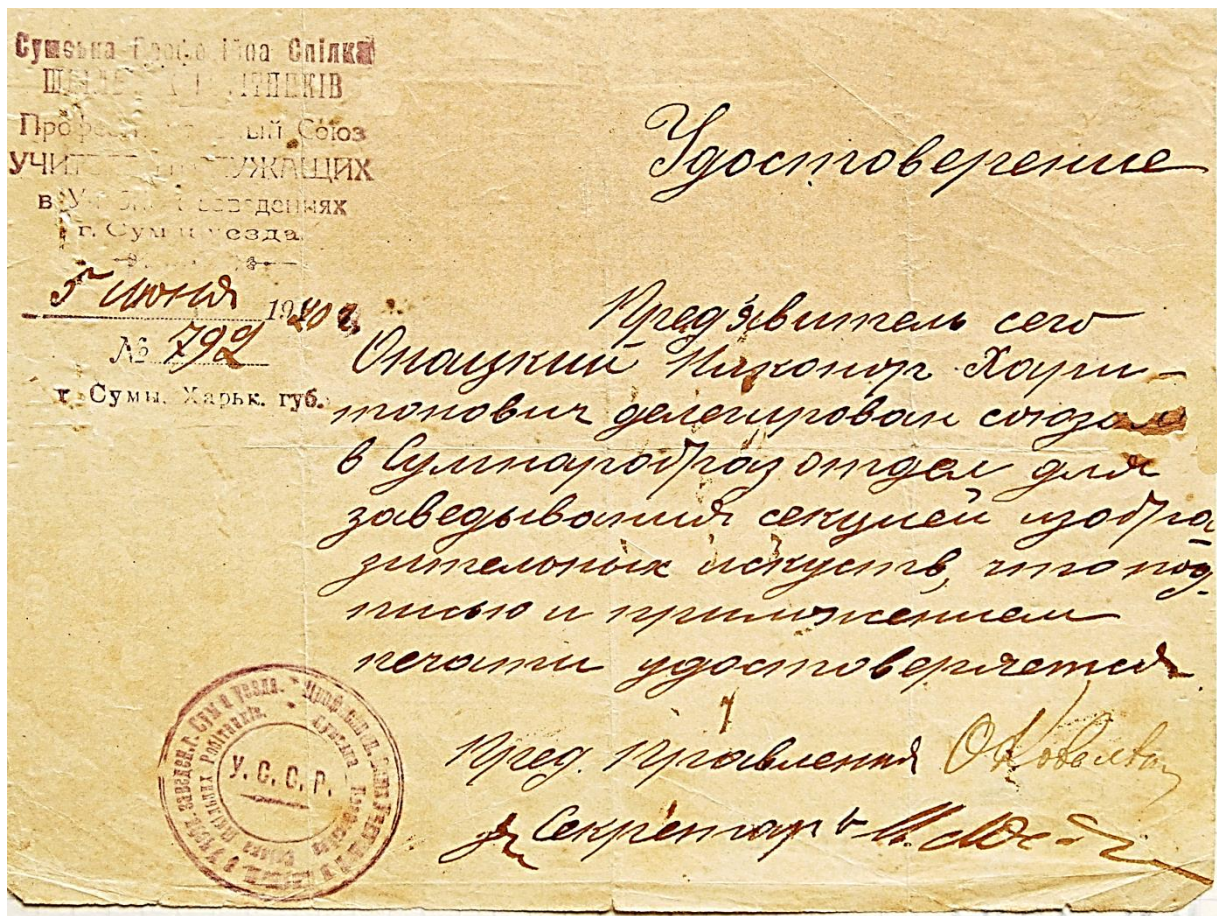 Сумська Спілка
Союз
УЧИТ СЛУЖАЩИХ
в заведениях
г. Сум и уезда
5 июня 1920 г.
№ 792
г. Сумы, Харьк. губ.
Удостоверение
Пред'явитель сего
Онацкий Никонор Хари-
тонович делегирован союзом
в Сумнаробраз отдел для
заведывания секцией изобра
зительных искуств, что под-
писью и приложением
печати удостоверяется.
Пред. Правления О Ковалев
Секретарь
У. С. С. Р.